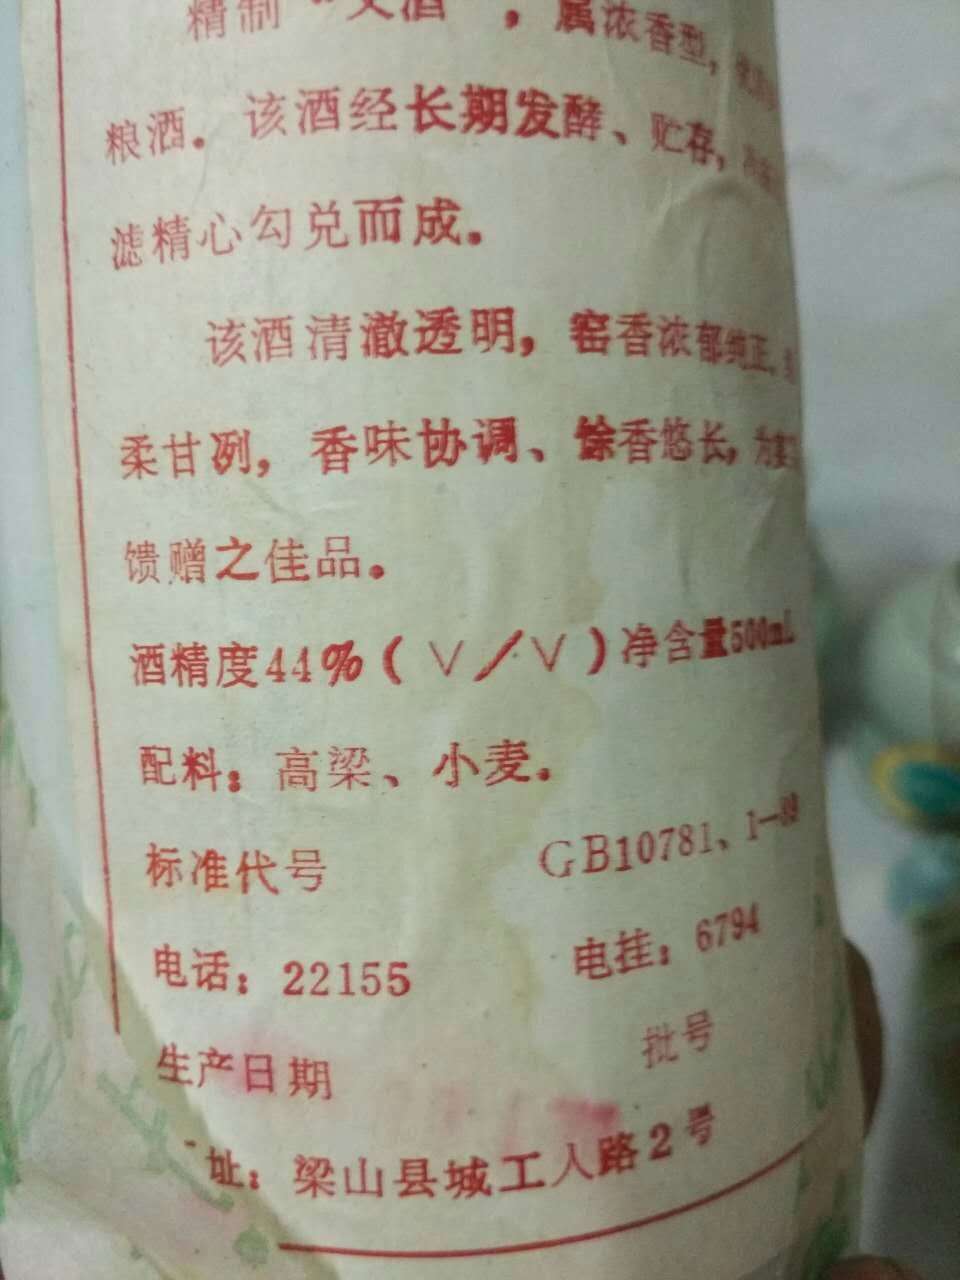 精制“ 酒”，属浓香型，
粮酒。该酒经长期发酵、贮存，
滤精心勾兑而成。
该酒清澈透明，窖香浓郁纯正、
柔甘冽，香味协调、馀香悠长，为
馈赠之佳品。
酒精度44%(V/V)净含量500mL
配料：高梁、小麦。
标准代号 GB10781、1-89
电话：22155 电挂：6794
生产日期 批号
址：梁山县城工人路2号